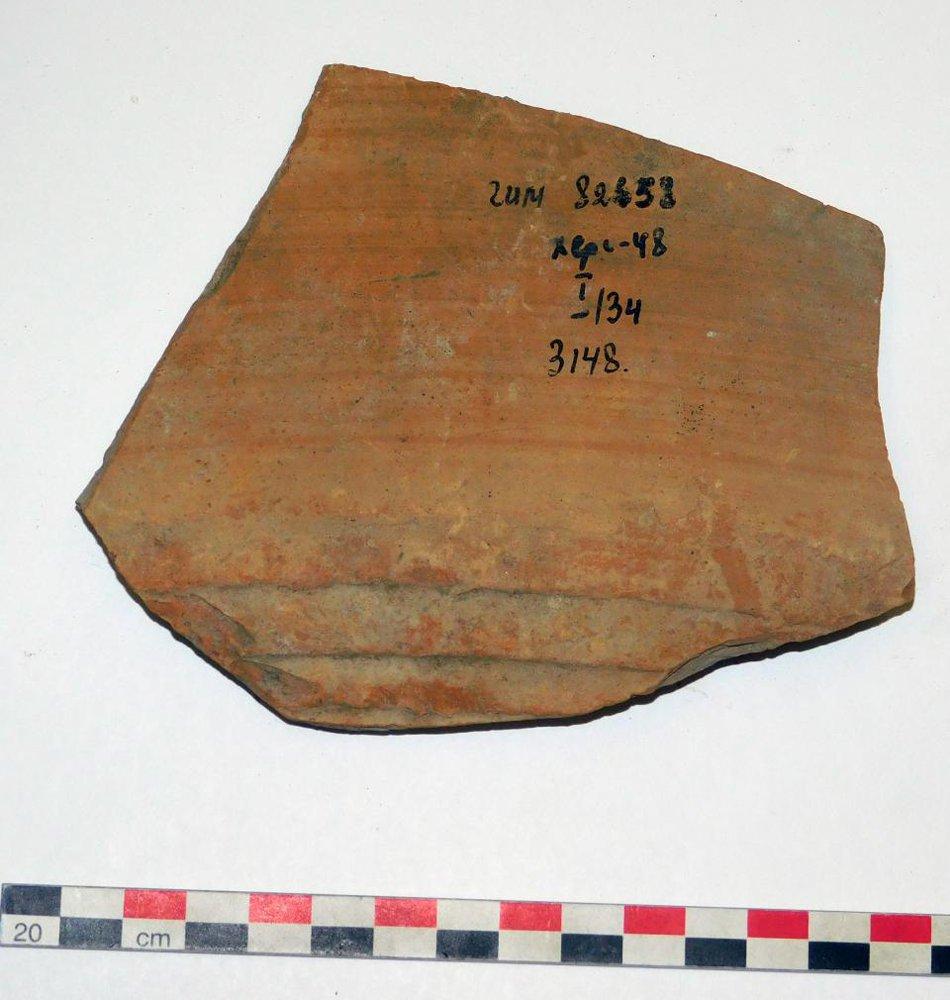 гим 82553
херс-48
I
-/34
3148.
20 cm